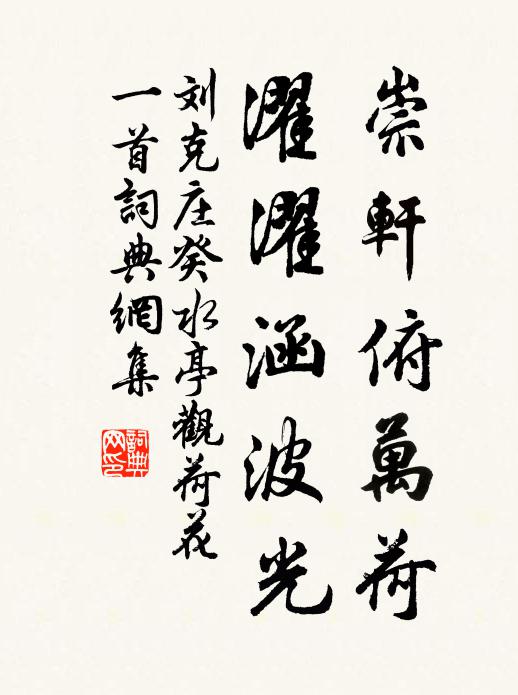 崇軒俯萬荷
濯濯涵波光
刘克庄癸水亭觀荷花
一首詞典網集
詞典
网印